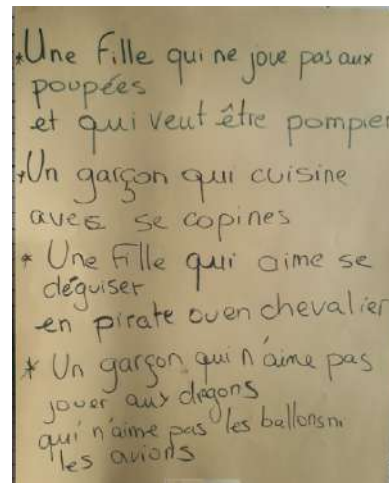 *Une fille qui ne joue pas aux
poupées
et qui veut être pompier
*Un garçon qui cuisine
aves se copines
* Une fille qui aime se
déguiser
en pirate ou en chevalier
* Un garçon qui n'aime pas
jouer aux dragons
qui n'aime pas les ballons ni
les avions